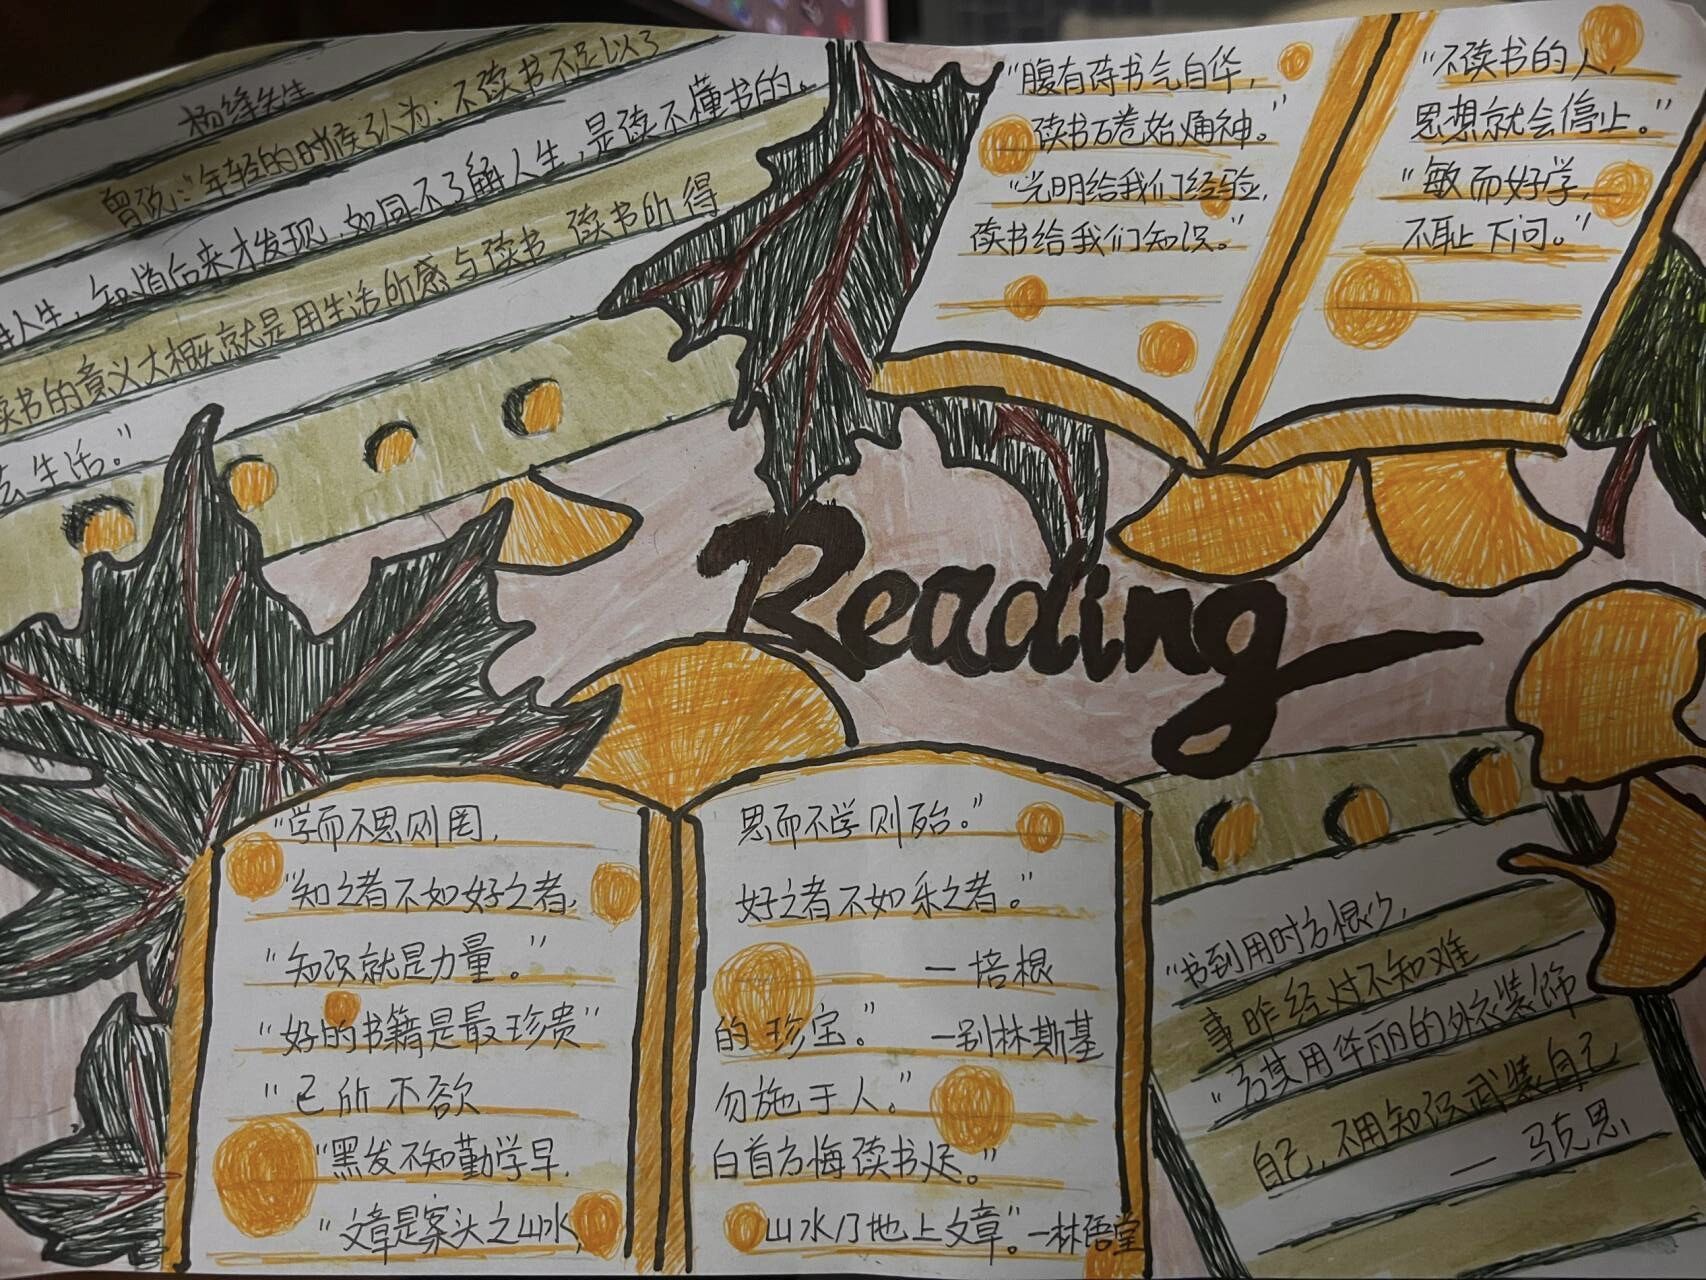 杨绛先生
曾说:“年轻的时候以为:不读书不足以了
解人生,知道后来才发现,如同不了解人生,是读不懂书的。
读书的意义大概就是用生活所感与读书,读书所得
去生活。”
“腹有诗书气自华,
读书万卷始通神。”
“光明给我们经验,
读书给我们知识。”
“不读书的人,
思想就会停止。”
“敏而好学,
不耻下问。”
Reading
“学而不思则罔,
思而不学则殆。”
“知之者不如好之者,
好之者不如乐之者。”
“知识就是力量。”
—培根
“好的书籍是最珍贵”
的珍宝。” —别林斯基
“己所不欲
勿施于人。”
“黑发不知勤学早,
白首方悔读书迟。”
“文章是案头之山水,
山水乃地上文章。”—林语堂
“书到用时方恨少,
事昨经过不知难
“方其用华丽的外衣装饰
自己,不用知识武装自己
— 马克思